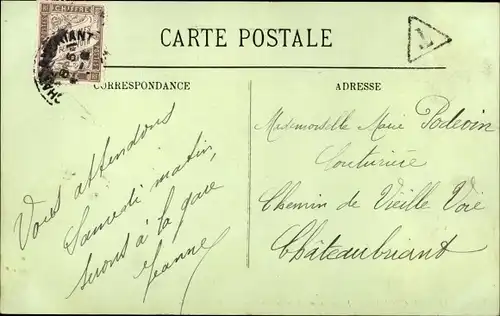 CHIFFRE
CARTE POSTALE
T
CORRESPONDANCE
ADRESSE
Vous attendons
Samedi matin,
serons à la gare
Jeanne
Mademoiselle Marie Podevin
Couturière
Chemin de Vieille Voie
Châteaubriant